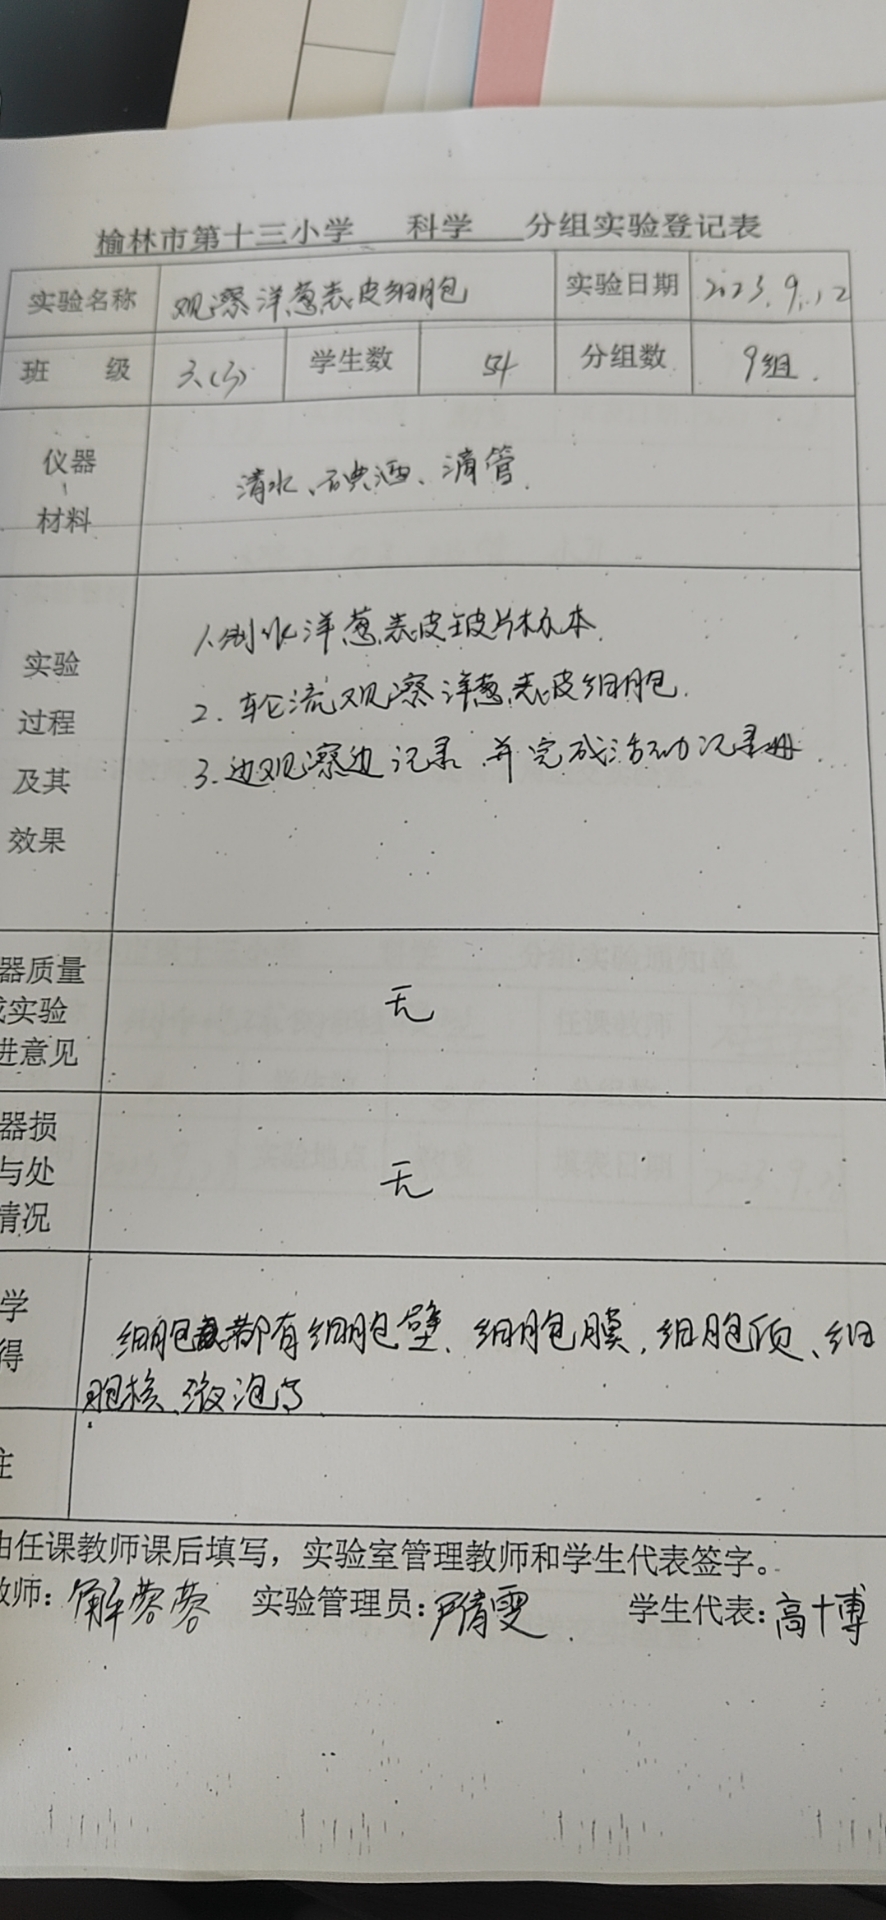 榆林市第十三小学 科学 分组实验登记表
实验名称 观察洋葱表皮细胞 实验日期 2023.9.12
班 级 三(3) 学生数 54 分组数 9组.
仪器
、
材料
清水、碘酒、滴管.
实验
过程
及其
效果
1.制作洋葱表皮玻片标本.
2.轮流观察洋葱表皮细胞.
3.边观察边记录,并完成活动记录册.
器质量
或实验
进意见
无
器损
与处
情况
无
学
得
细胞都有细胞壁、细胞膜,细胞质、细
胞核、液泡等
注
由任课教师课后填写,实验室管理教师和学生代表签字。
教师: 解蓉蓉 实验管理员: 学生代表: 高十博